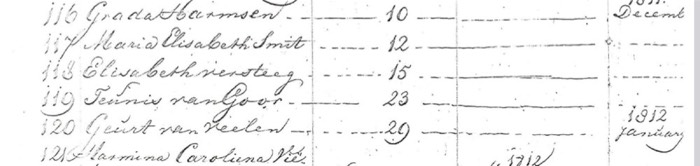 116 Grada Harmsen 10 Decemb
117 Maria Elisabeth Smit 12
118 Elisabeth versteeg 15
119 Teunis van Goor 23
120 Geurt van Veelen 29 1812 January
121 Harmina Carolina 1812